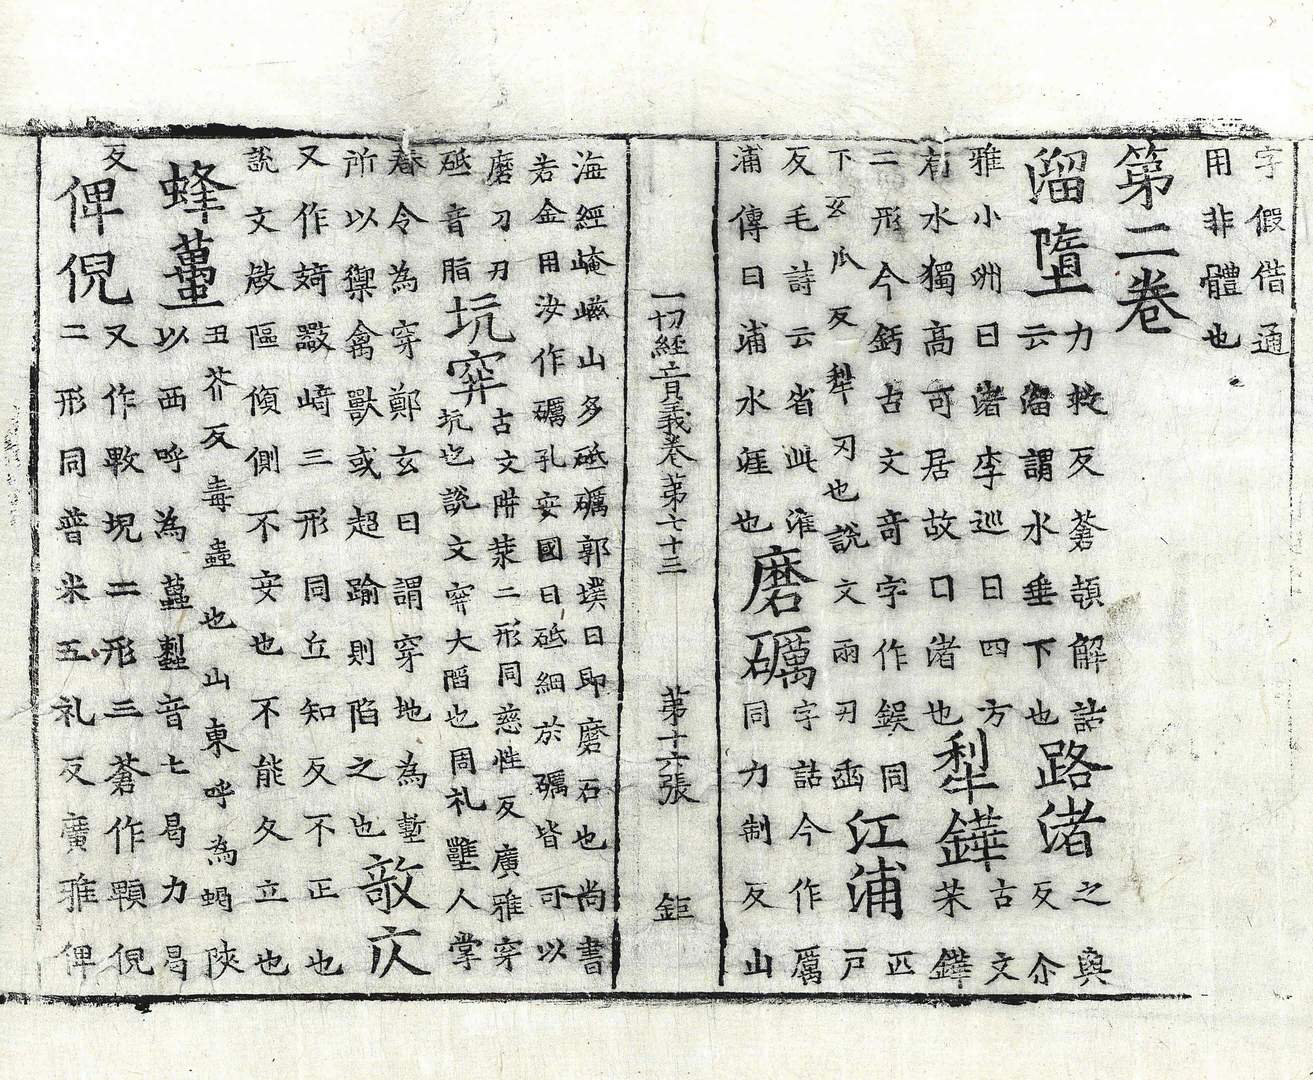 字假借通
用非體也
第二卷
溜墮
力救反蒼頡解詁
云溜謂水垂下也
路渚
之與
反尒
雅小洲曰渚李巡曰四方
有水獨高可居故曰渚也
犁鏵
古文
茮鏵
二形今鈣古文奇字作鋘同
下瓜反犁刃也說文兩刃臿
江浦
匹
戶
反毛詩云省此淮
浦傳曰浦水涯也
磨礪
字詁今作厲
同力制反山
一切經音義卷第七十三 第十六張 鉅
海經崦嵫山多砥礪郭璞曰即磨石也尚書
若金用汝作礪孔安國曰砥細於礪皆可以
磨刀刃
砥音脂
坑穽
古文阱𦮼二形同慈性反廣雅穽
坑也說文穽大陷也周礼雝人掌
春令為穽鄭玄曰謂穿地為塹
所以禦禽獸或超踰則陷之也
敧庂
又作崎三形同丘知反不正也
說文敧傾側不安也不能久立也
蜂蠆
丑芥反毒蟲也山東呼為蝎陝
以西呼為蠆音七曷力曷
反
俾倪
又作堄二形三蒼作倪
二形同普米五礼反廣雅俾